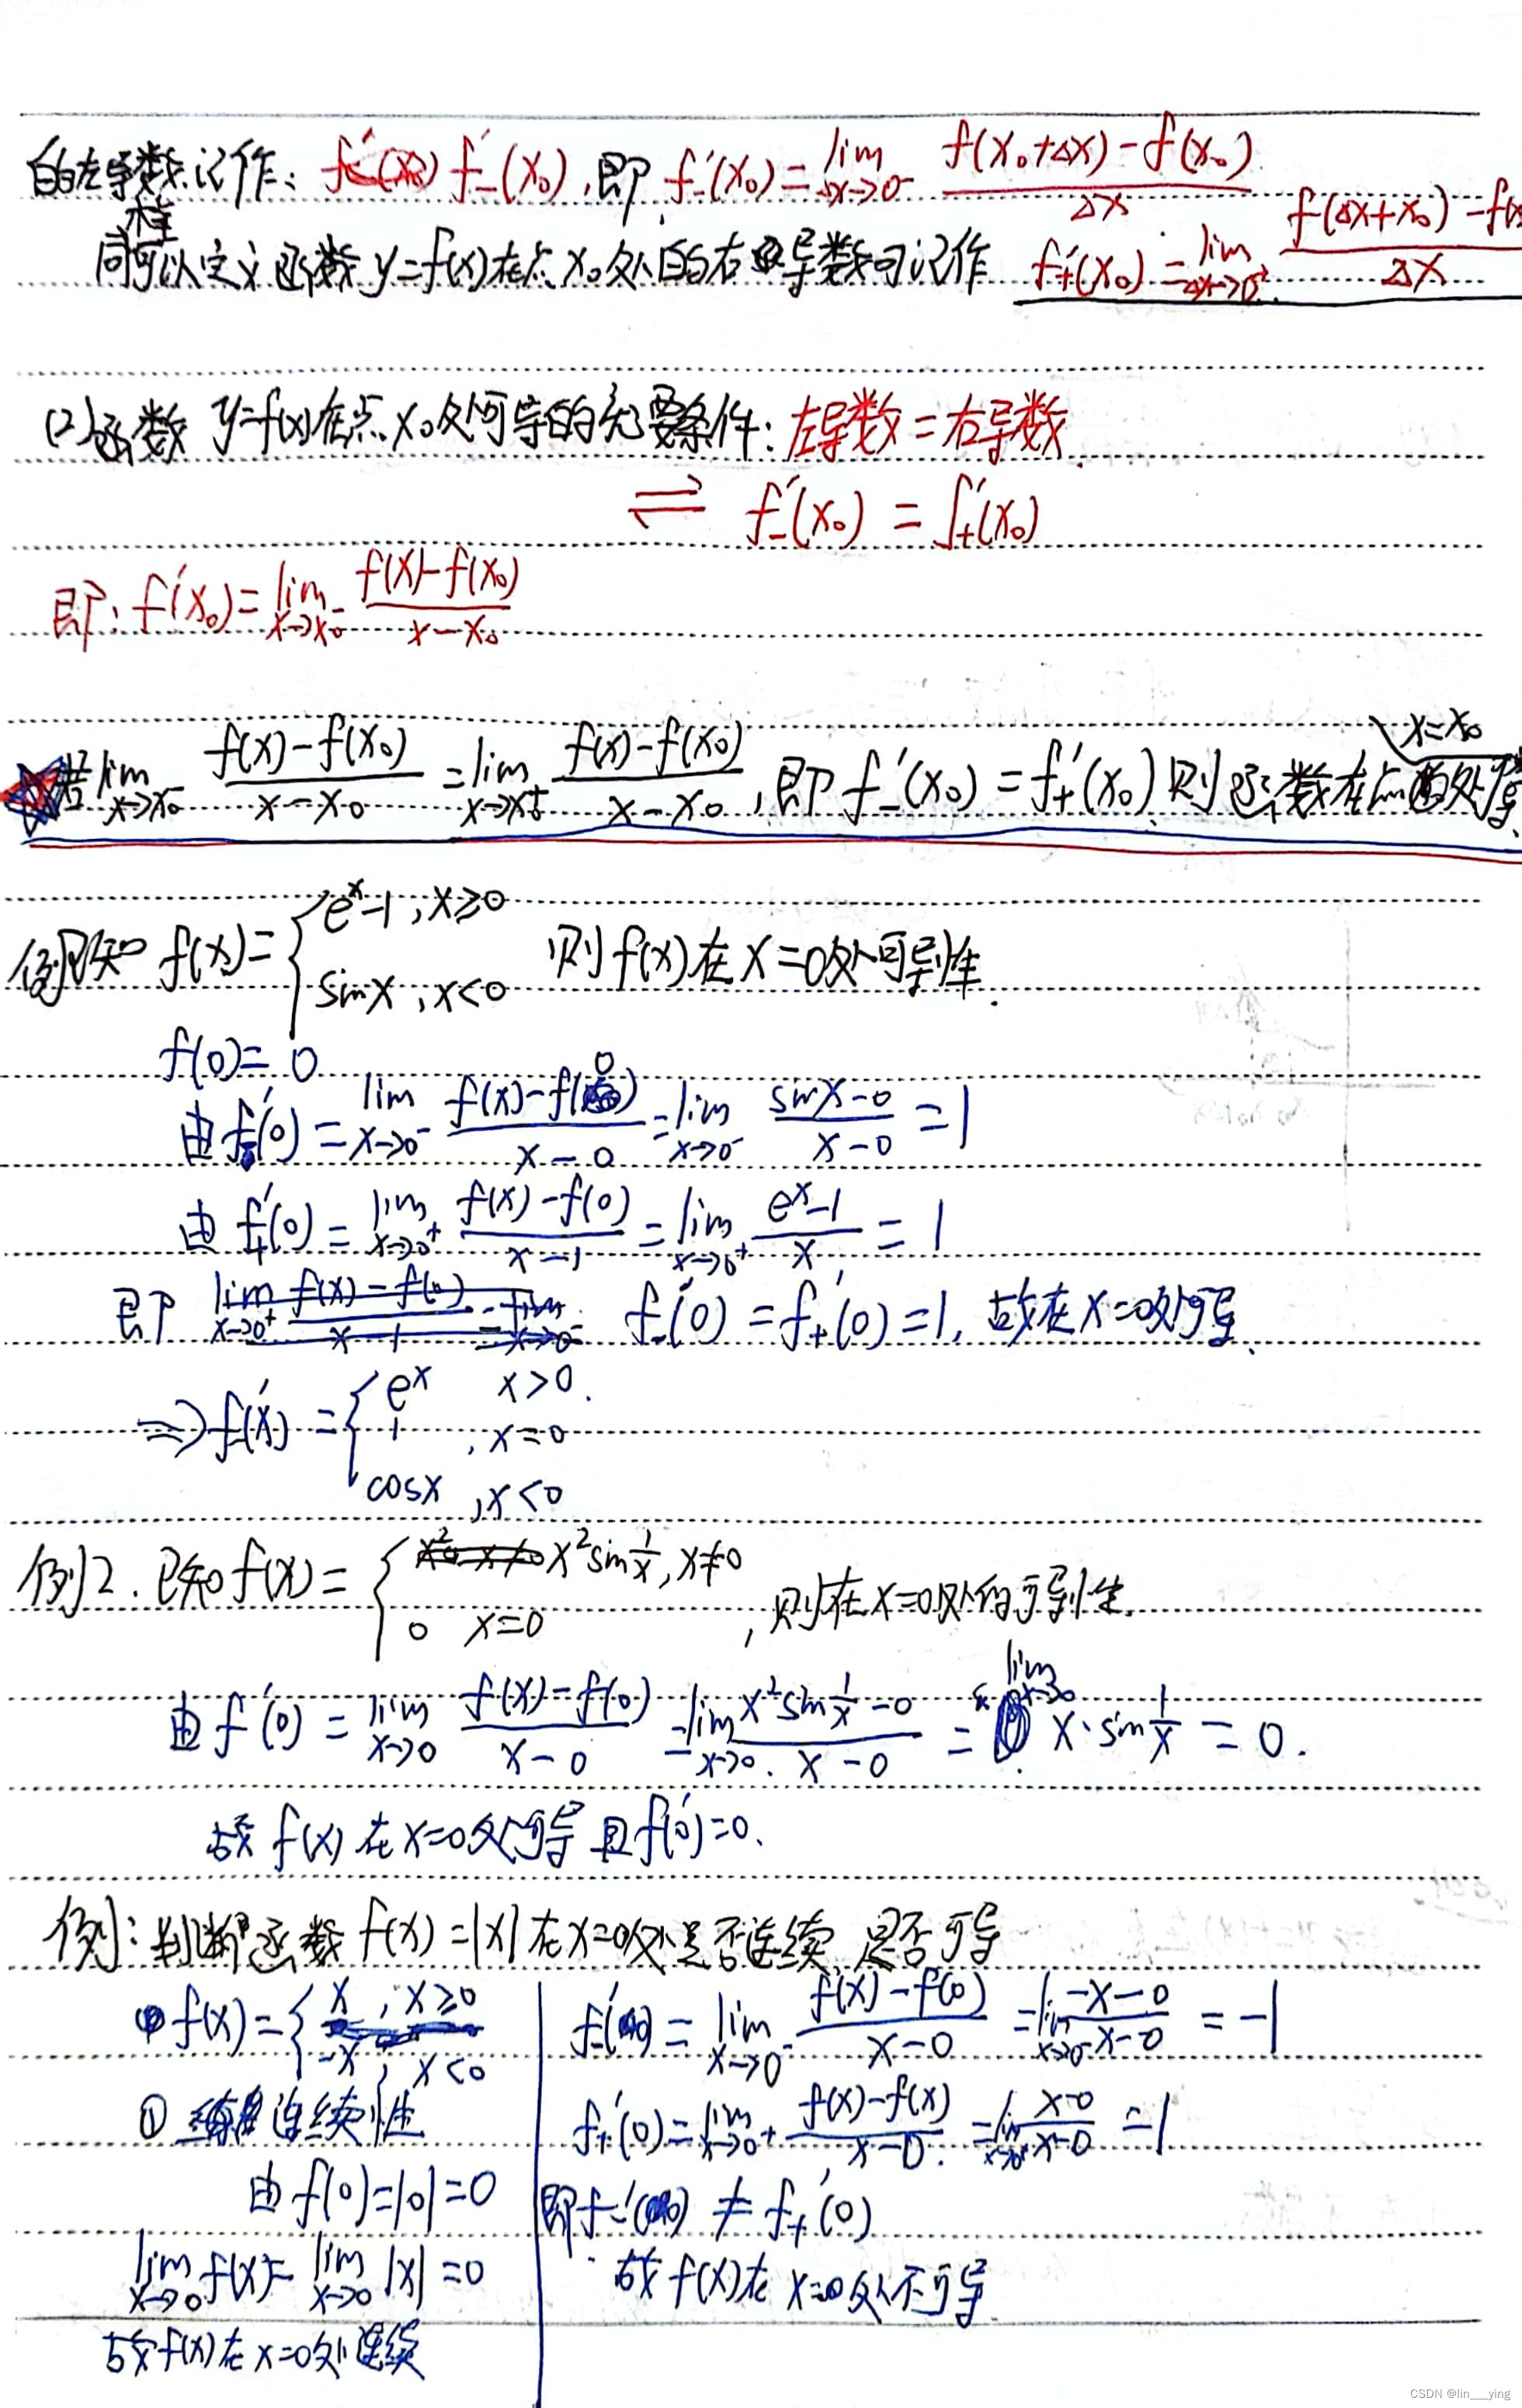 的左导数记作: f₋′(x₀), 即 f₋′(x₀) = lim_{Δx→0⁻} (f(x₀+Δx) − f(x₀))/Δx
同样可以定义函数 y=f(x) 在点 x₀ 处的右导数可记作 f₊′(x₀) = lim_{Δx→0⁺} (f(Δx+x₀) − f(x₀
(2) 函数 y=f(x) 在点 x₀ 处可导的充要条件: 左导数 = 右导数.
⇌ f₋′(x₀) = f₊′(x₀)
即: f′(x₀) = lim_{x→x₀⁻} (f(x) − f(x₀))/(x − x₀)
若 lim_{x→x₀⁻} (f(x) − f(x₀))/(x − x₀) = lim_{x→x₀⁺} (f(x) − f(x₀))/(x − x₀), 即 f₋′(x₀) = f₊′(x₀). 则函数在点 x=x₀ 处可导.
例已知 f(x) = { e^x − 1, x≥0
sinx, x<0 则 f(x) 在 x=0 处可导性.
f(0) = 0
由 f₋′(0) = lim_{x→0⁻} (f(x) − f(0))/(x − 0) = lim_{x→0⁻} (sinx − 0)/(x − 0) = 1
由 f₊′(0) = lim_{x→0⁺} (f(x) − f(0))/(x − 1) = lim_{x→0⁺} (e^x − 1)/x = 1
即 f₋′(0) = f₊′(0) = 1, 故在 x=0 处可导.
⇒ f′(x) = { e^x x>0.
1, x=0
cosx, x<0
例2. 已知 f(x) = { x² sin 1/x, x≠0
0 x=0, 则在 x=0 处的可导性.
由 f′(0) = lim_{x→0} (f(x) − f(0))/(x − 0) = lim_{x→0} (x² sin 1/x − 0)/(x − 0) = lim_{x→0} x·sin 1/x = 0.
故 f(x) 在 x=0 处可导 且 f′(0)=0.
例: 判断函数 f(x) = |x| 在 x=0 处是否连续, 是否可导
f(x) = { x, x≥0
−x, x<0
① 连续性
由 f(0) = |0| = 0
lim_{x→0} f(x) = lim_{x→0} |x| = 0
故 f(x) 在 x=0 处连续
f₋′(0) = lim_{x→0⁻} (f(x) − f(0))/(x − 0) = lim_{x→0⁻} (−x − 0)/(x − 0) = −1
f₊′(0) = lim_{x→0⁺} (f(x) − f(x))/(x − 0) = lim_{x→0⁺} (x − 0)/(x − 0) = 1
即 f₋′(0) ≠ f₊′(0)
故 f(x) 在 x=0 处不可导
CSDN @lin___ying